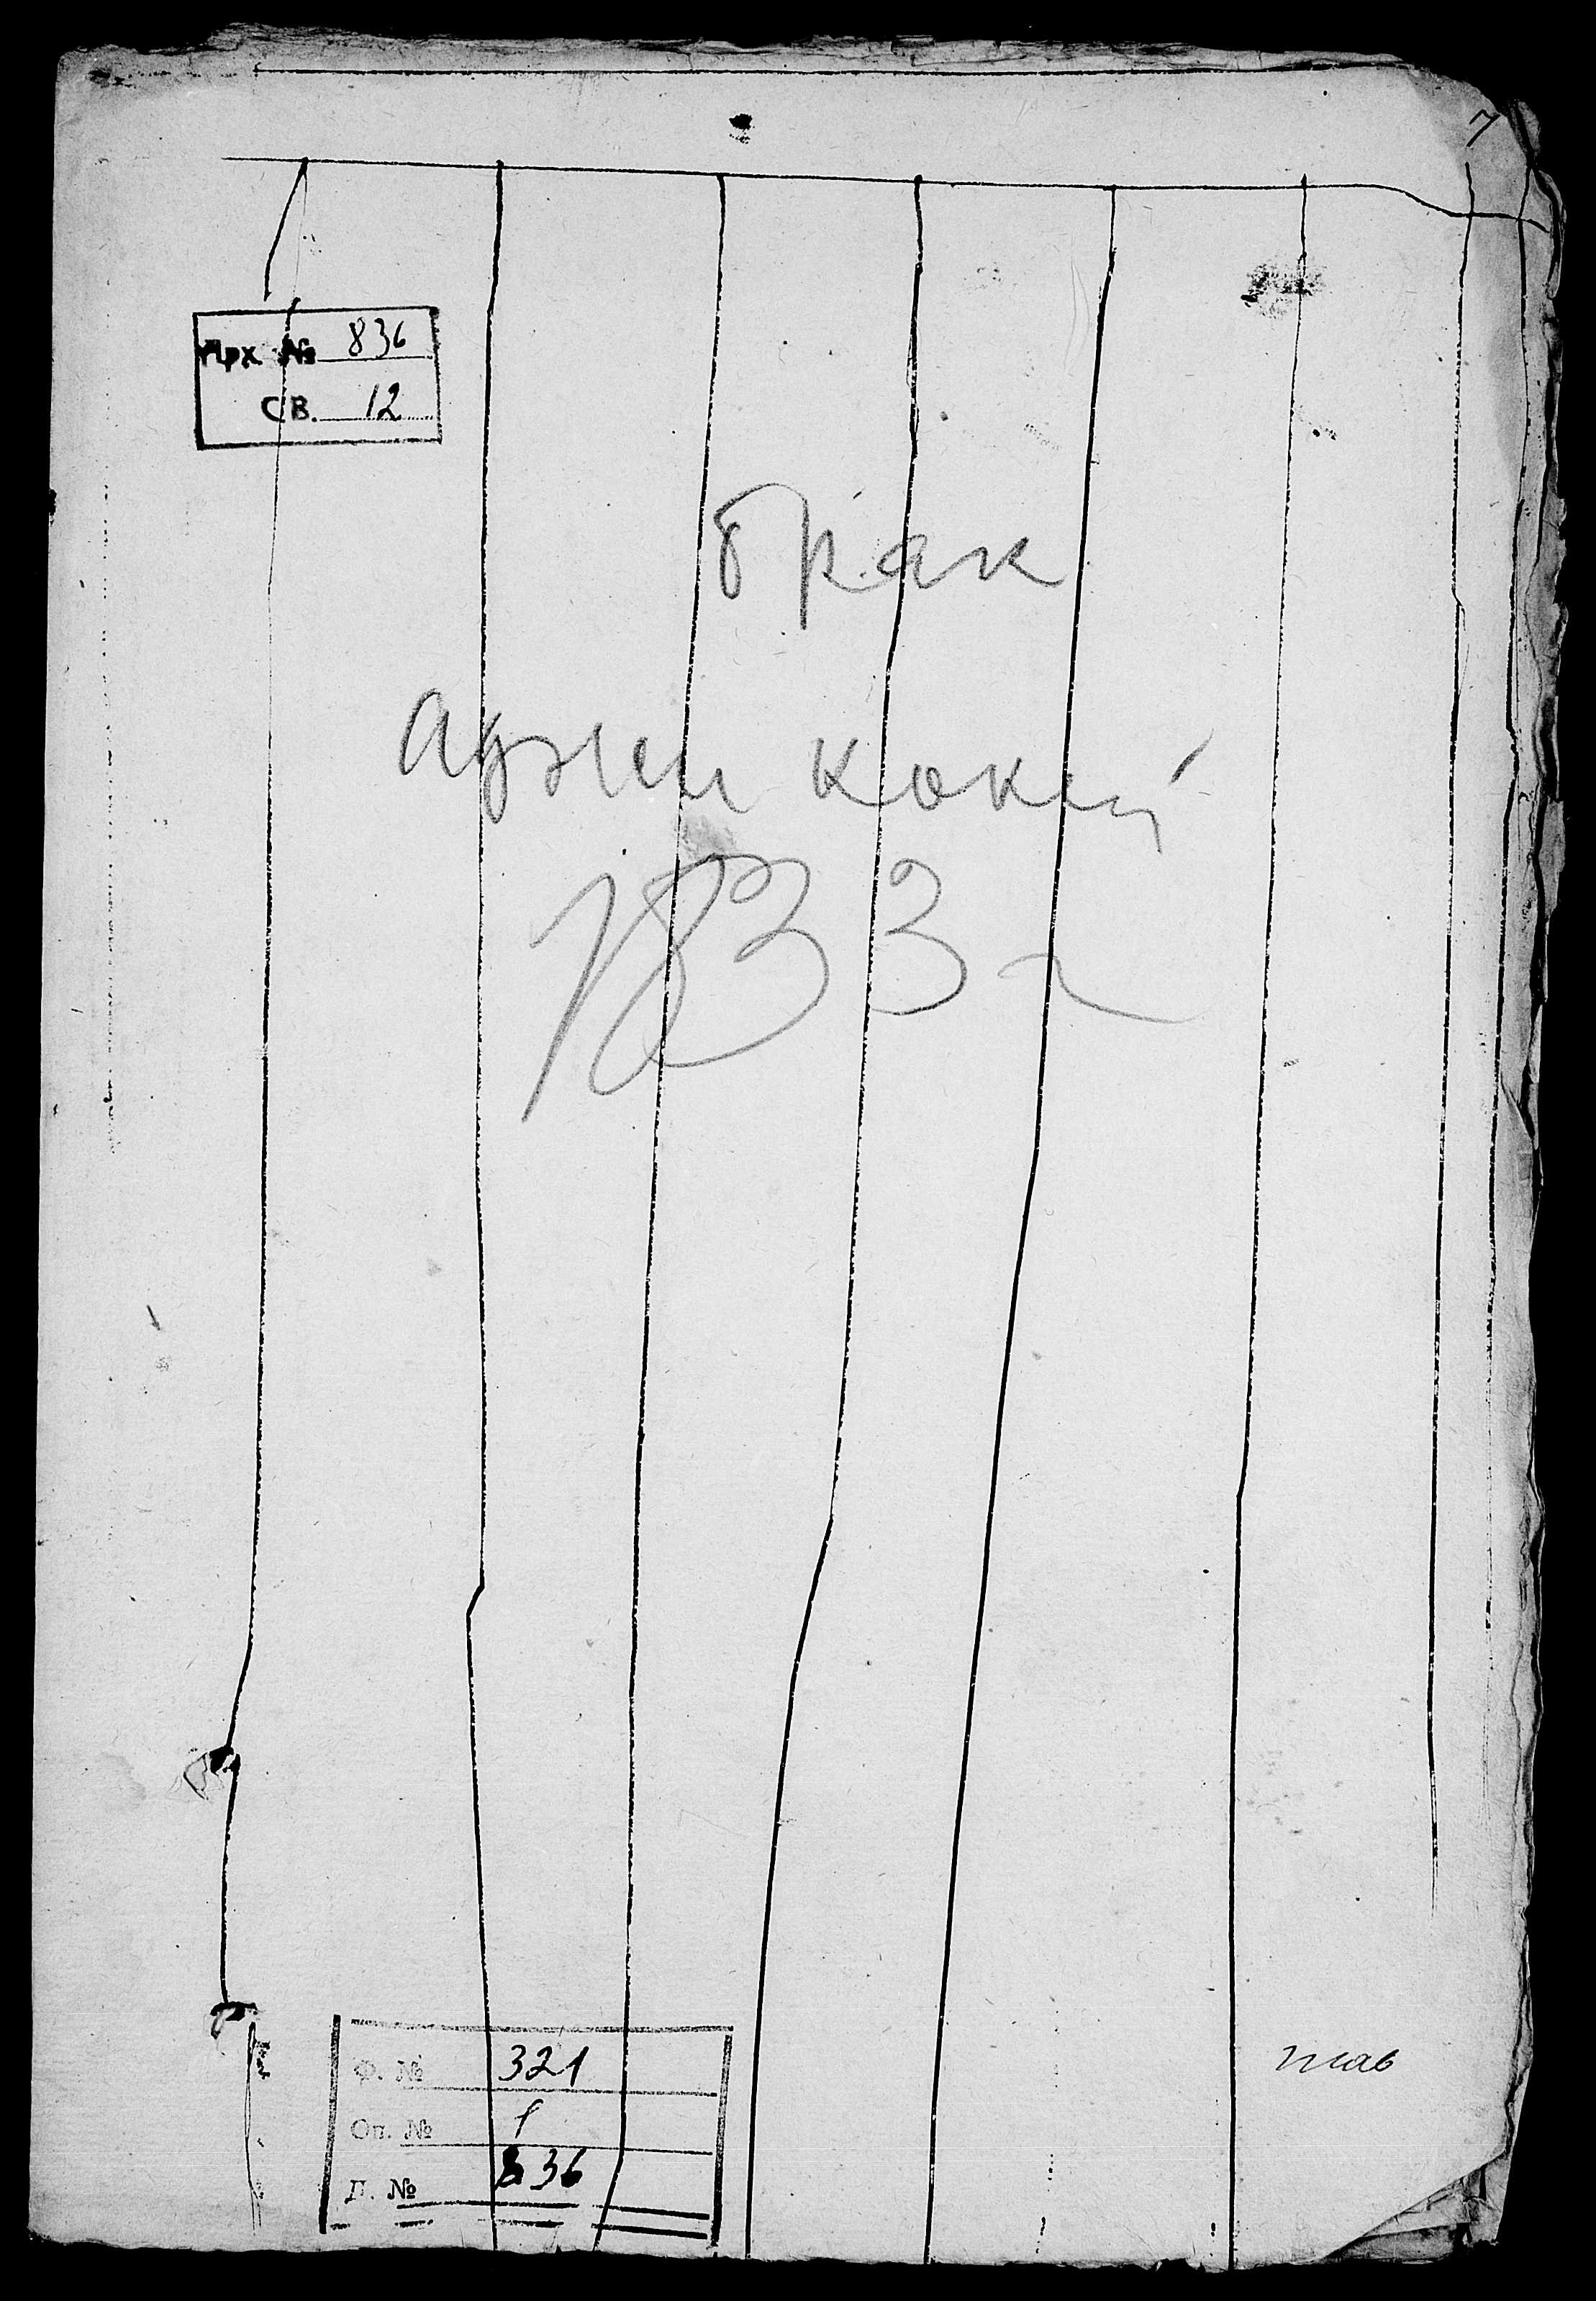 7
Арх. № 836
СВ. 12
брак
аджи кокей
1833 г
Ф. № 321
Оп. № 1
Д. № 836